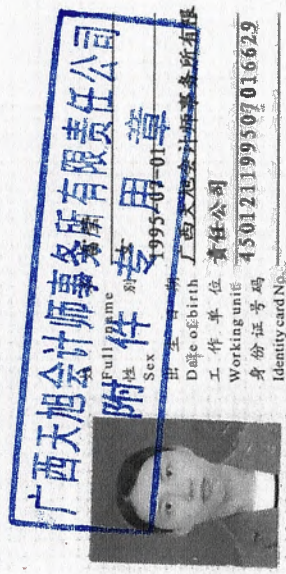 广西天旭会计师事务所有限责任公司
附件专用章
Full name
性别
Sex
出生日期
1995-07-01
Date of birth
工作单位
广西天旭会计师事务所有限
责任公司
Working unit
身份证号码
450121199507016629
Identity card No.